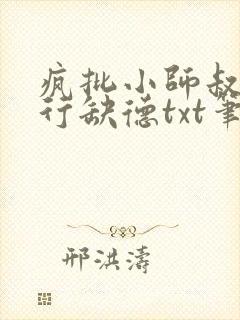 疯批小師叔
行缺德txt筆
邢洪濤